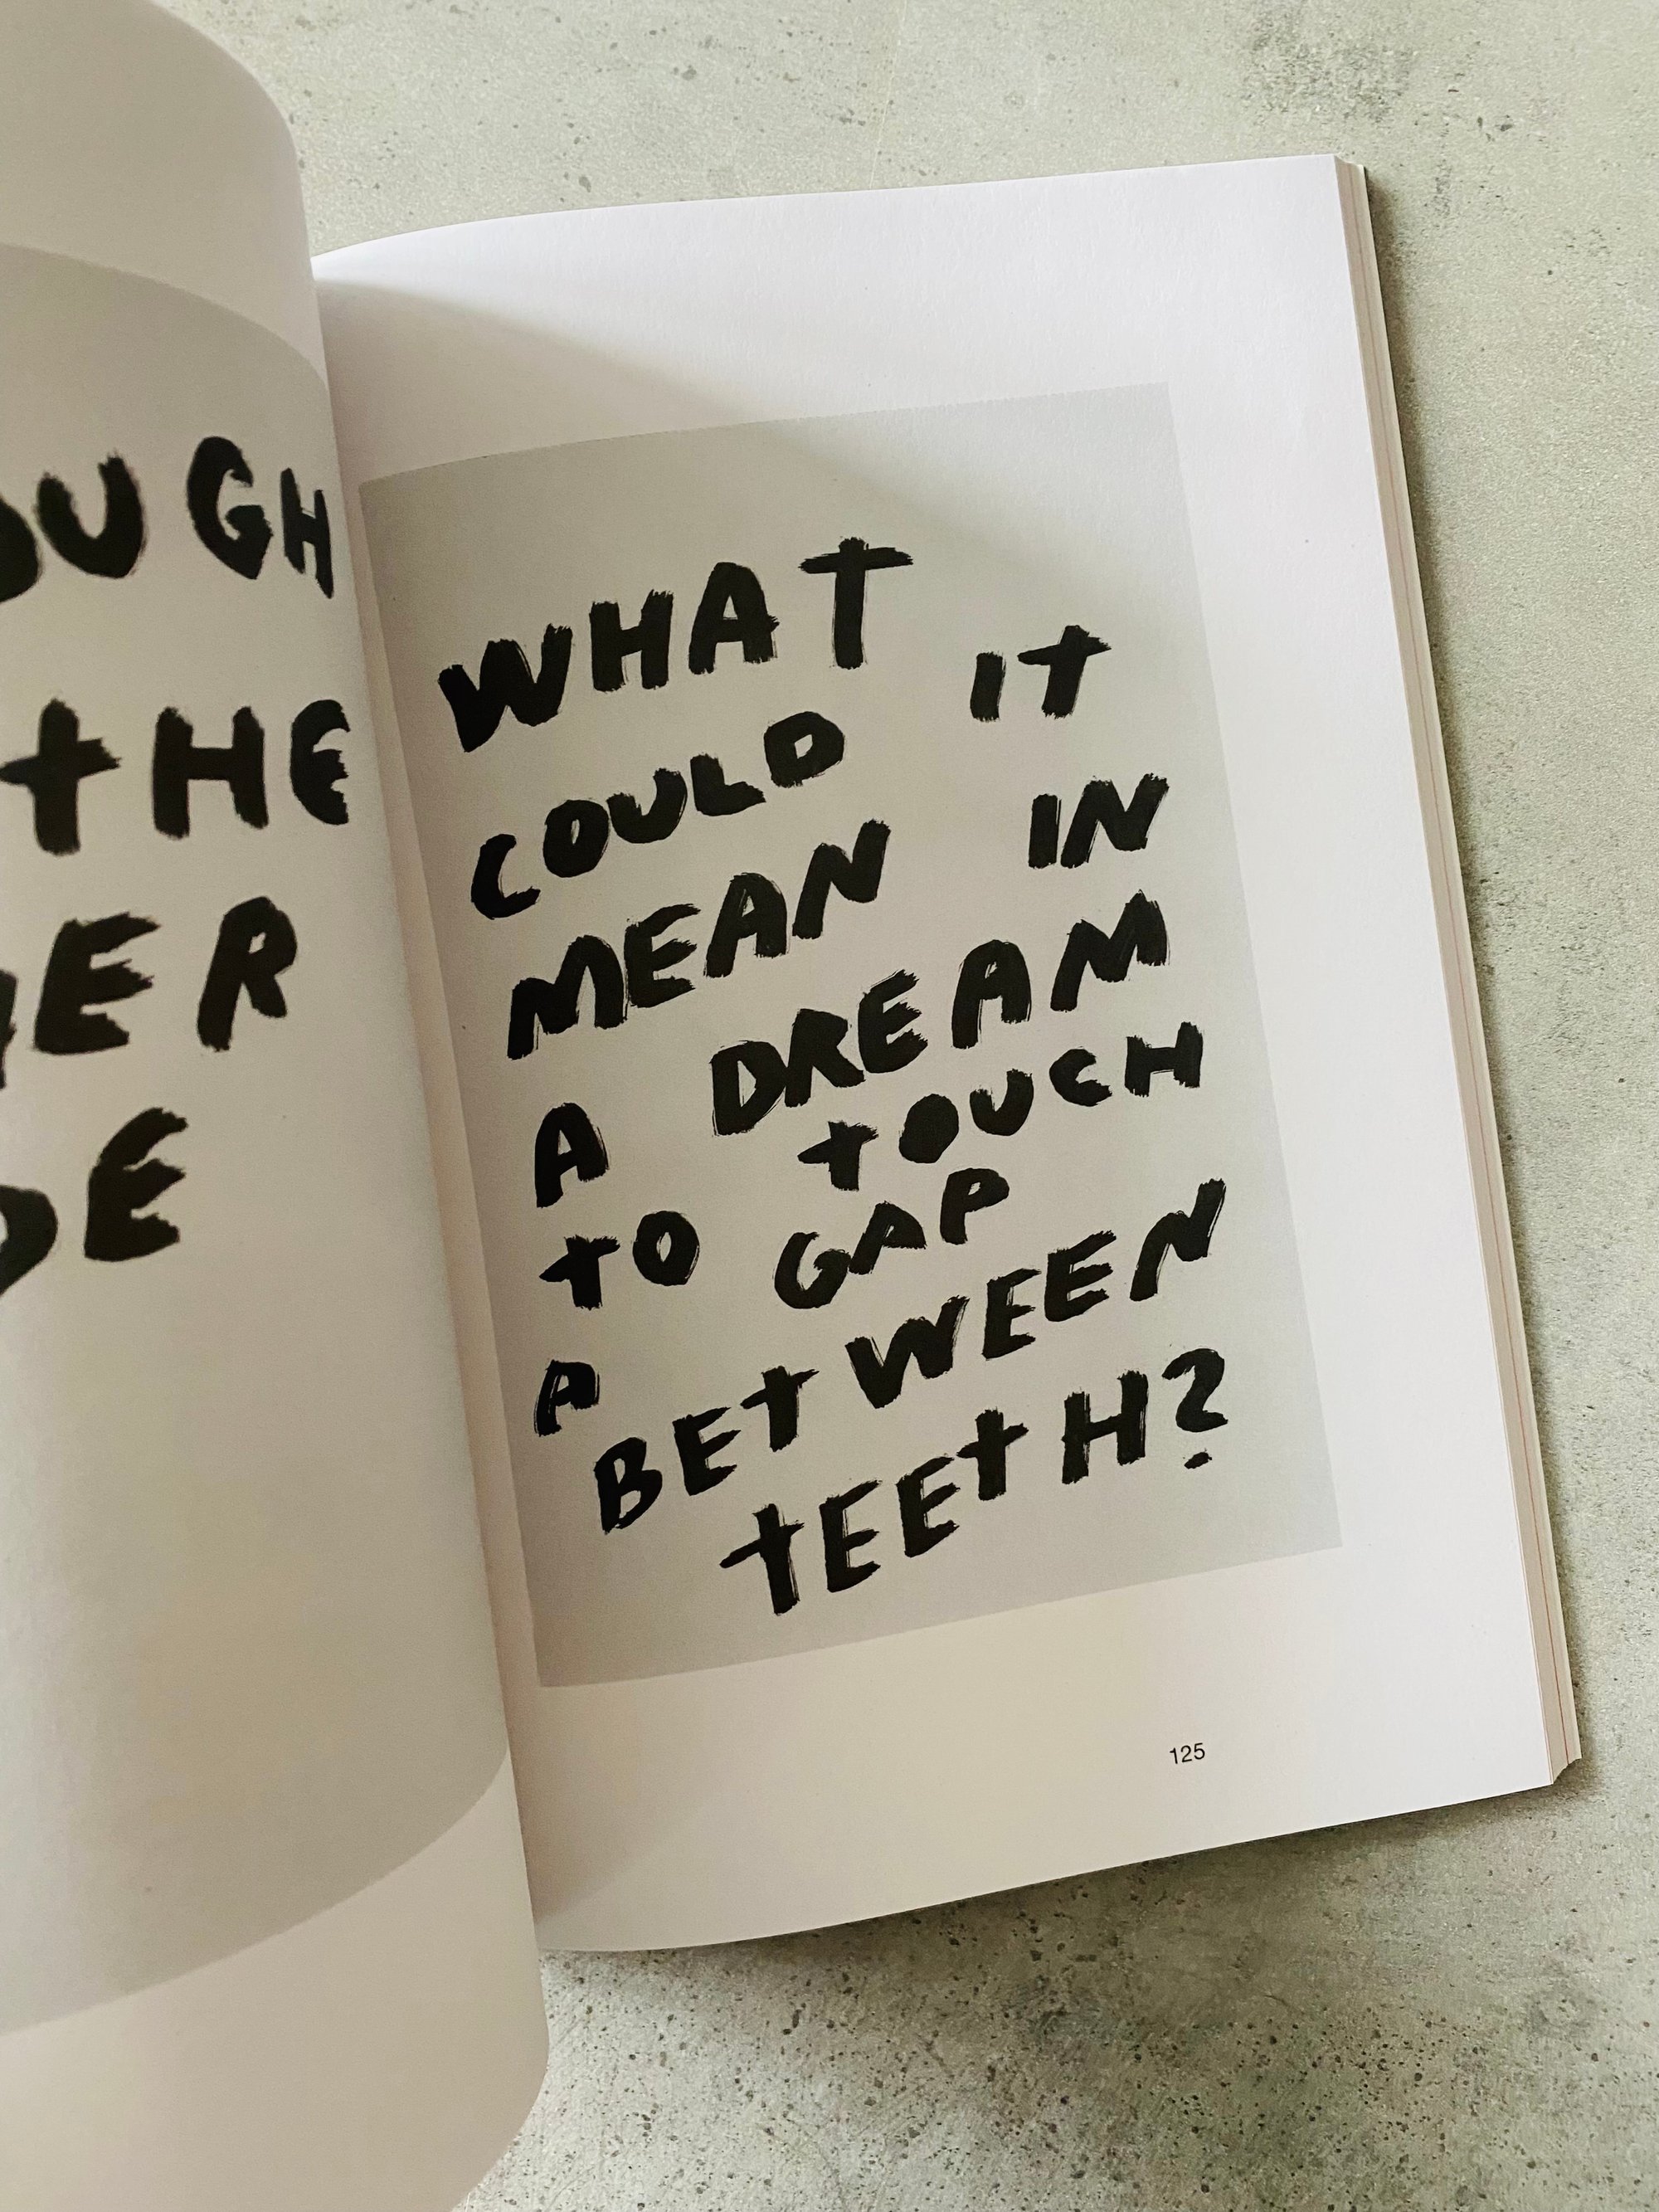 THE
WHAT
COULD IT
MEAN IN
A DREAM
TO TOUCH
A GAP
BETWEEN
TEETH?
125